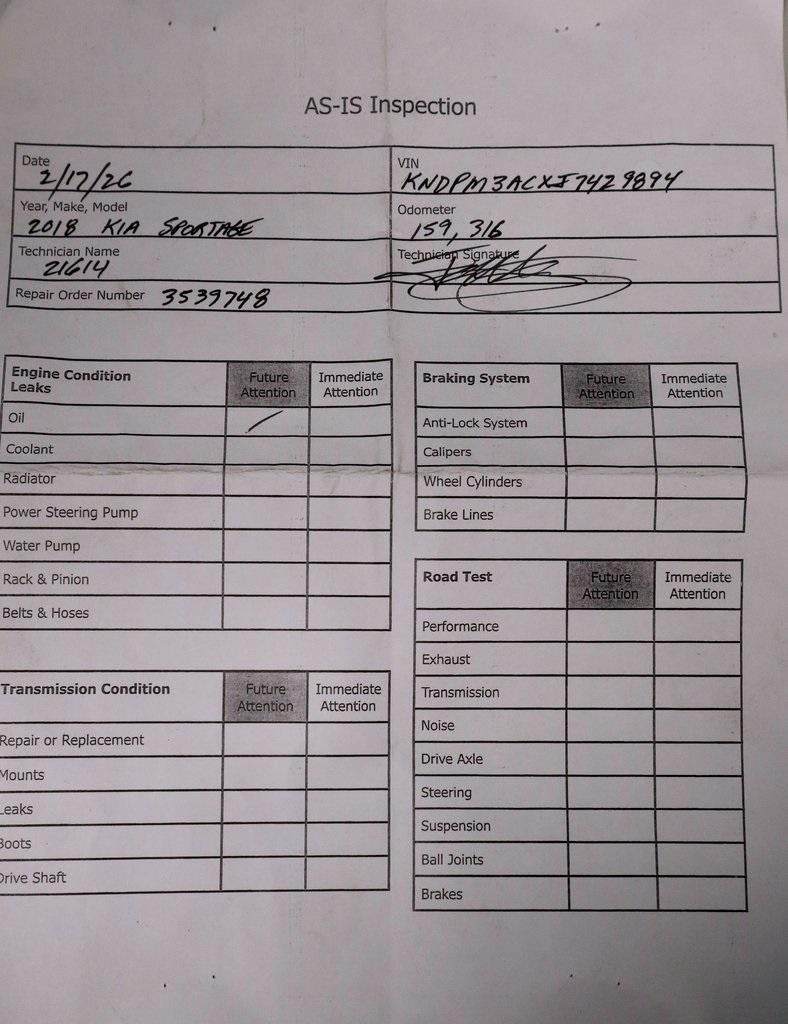 AS-IS Inspection
Date
2/17/26
VIN
KNDPM3ACXJ7429894
Year, Make, Model
2018 KIA SPORTAGE
Odometer
159,316
Technician Name
21614
Technician Signature
Repair Order Number 3539748
Engine Condition
Leaks
Future
Attention
Immediate
Attention
Oil
Coolant
Radiator
Power Steering Pump
Water Pump
Rack & Pinion
Belts & Hoses
Transmission Condition
Future
Attention
Immediate
Attention
Repair or Replacement
Mounts
Leaks
Boots
Drive Shaft
Braking System
Future
Attention
Immediate
Attention
Anti-Lock System
Calipers
Wheel Cylinders
Brake Lines
Road Test
Future
Attention
Immediate
Attention
Performance
Exhaust
Transmission
Noise
Drive Axle
Steering
Suspension
Ball Joints
Brakes